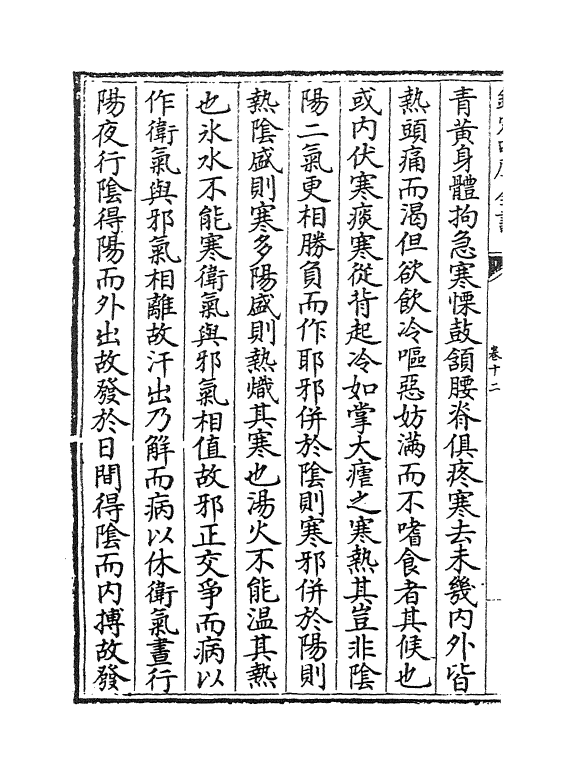 卷十二
青黃身體拘急寒慄鼓頷腰脊俱疼寒去未幾內外皆
熱頭痛而渴但欲飲冷嘔惡妨滿而不嗜食者其候也
或內伏寒痰寒從背起冷如掌大瘧之寒熱其豈非陰
陽二氣更相勝負而作耶邪併於陰則寒邪併於陽則
熱陰盛則寒多陽盛則熱熾其寒也湯火不能溫其熱
也氷水不能寒衛氣與邪氣相值故邪正交爭而病以
作衛氣與邪氣相離故汗出乃解而病以休衛氣晝行
陽夜行陰得陽而外出故發於日間得陰而內搏故發